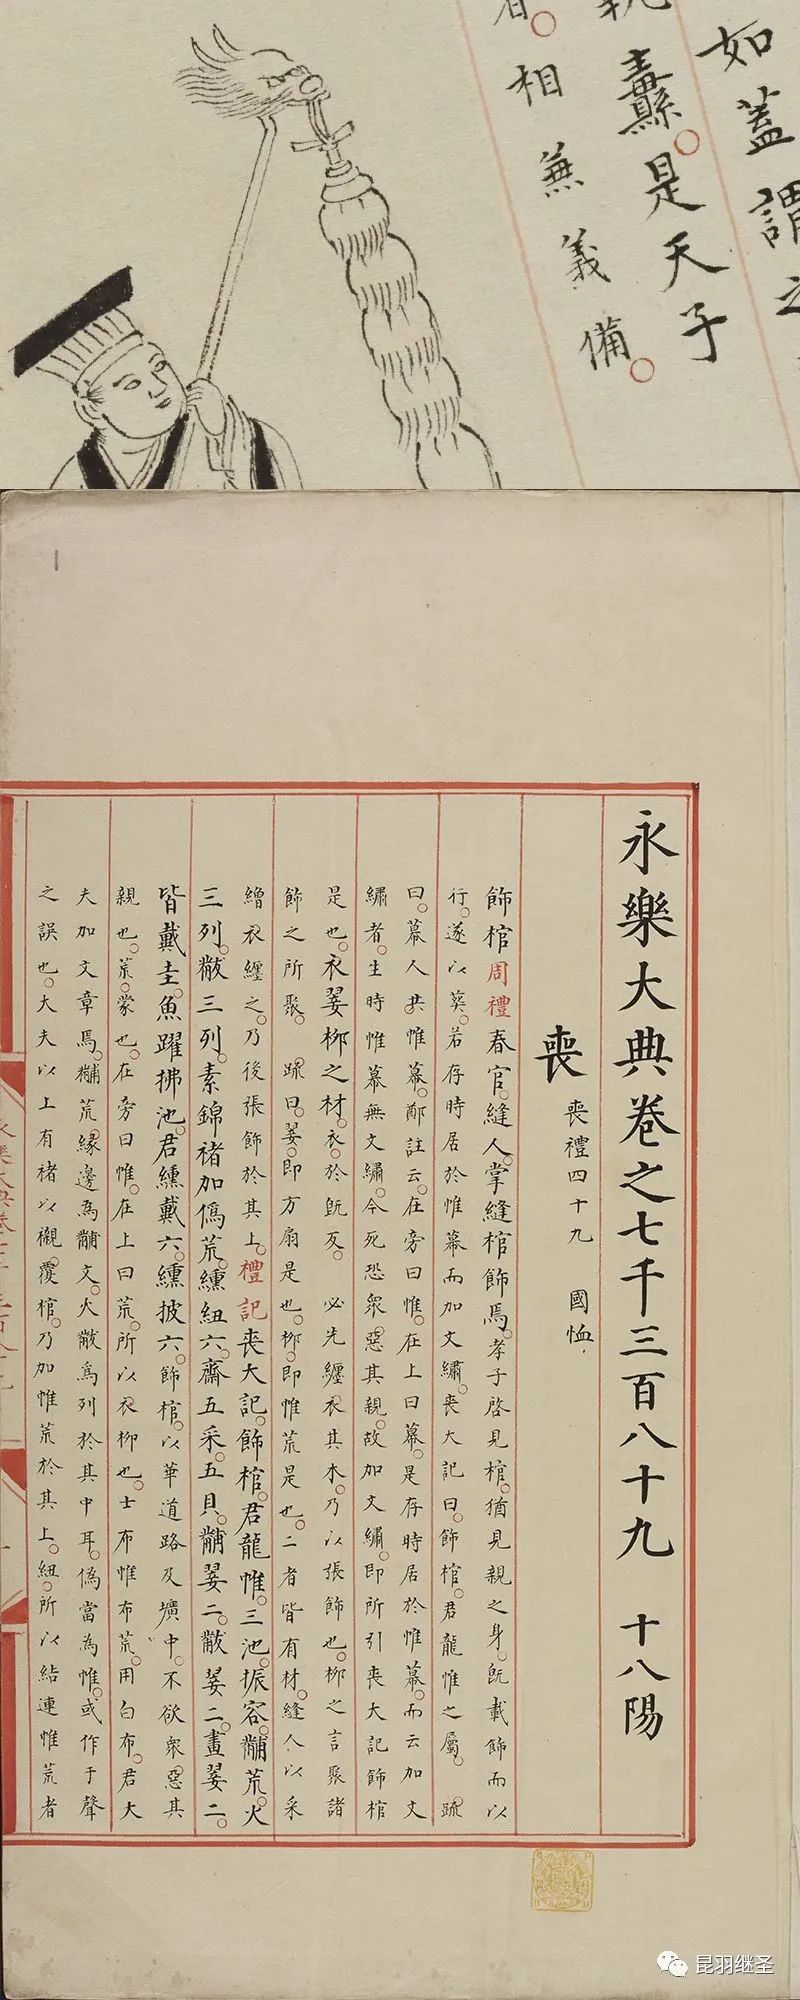 如蓋謂之
纛。是天子
相無義備。
永樂大典卷之七千三百八十九 十八陽
喪 喪禮四十九 國恤
飾棺周禮春官。縫人。掌縫棺飾焉。孝子啓見棺。猶見親之身。既載飾而以
行。遂以葬。若存時居於帷幕而加文繡。喪大記曰。飾棺。君龍帷之屬。 疏
曰。幕人共帷幕。鄭註云。在旁曰帷。在上曰幕。是存時居於帷幕。而云加文
繡者。生時帷幕無文繡。今死恐衆惡其親。故加文繡。即所引喪大記飾棺
是也。衣翣柳之材。衣。於既反。 必先纏衣其木。乃以張飾也。柳之言聚諸
飾之所聚。 疏曰。翣。即方扇是也。柳。即帷荒是也。二者皆有材。縫人以采
繒衣纏之。乃後張飾於其上。禮記喪大記。飾棺。君龍帷。三池。振容。黼荒。火
三列。黻三列。素錦褚加僞荒。纁紐六。齊五采。五貝。黼翣二。黻翣二。畫翣二。
皆戴圭。魚躍拂池。君纁戴六。纁披六。飾棺。以華道路及壙中。不欲衆惡其
親也。荒。蒙也。在旁曰帷。在上曰荒。所以衣柳也。士布帷布荒。用白布。君大
夫加文章焉。黼荒。緣邊爲黼文。火黻爲列於其中耳。僞當為帷。或作于聲
之誤也。大夫以上有褚以襯覆棺。乃加帷荒於其上。紐。所以結連帷荒者
昆羽继圣